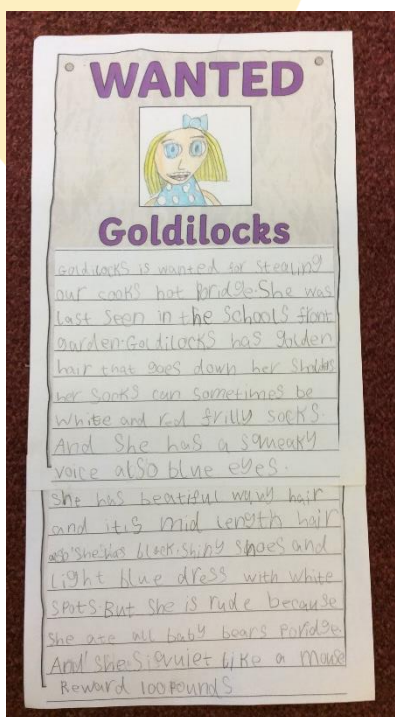 WANTED
Goldilocks
Goldilocks is wanted for Stealing
our cooks hot Poridge. She was
last seen in the Schools front
garden. Goldilocks has golden
hair that goes down her
her Socks can sometimes be
white and red frilly socks.
And She has a squeaky
voice also blue eyes.
She has beatiful wavy hair
and it is mid length hair
She has black shiny shoes and
Light blue dress with white
SPots. But She is rude because
She ate all baby bears Poridge.
And She is quiet Like a mouse
Reward 100 Pounds